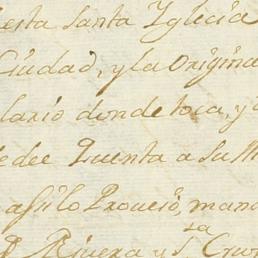 esta Santa Yglecia
Ciudad, y la Origina
lario donde toca, y
dee Quenta a su M
asi lo Proveió, man
Rivera y Sta Cruz